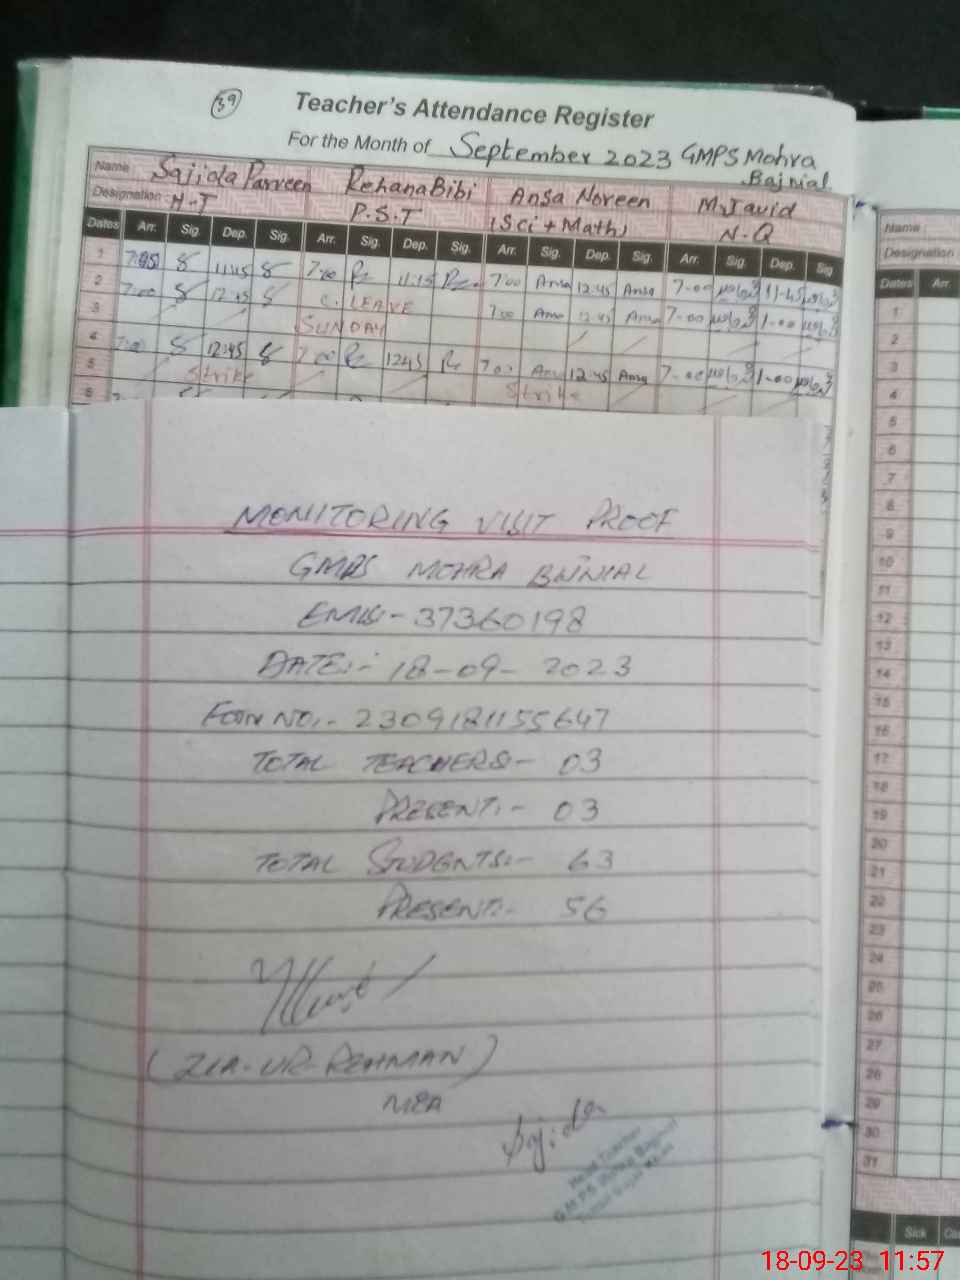 39
Teacher's Attendance Register
For the Month of September 2023 GMPS Mohra
Bajnial
Name : Sajida Parveen Rehana Bibi Ansa Noreen M.Javid
Designation : H-T P.S.T (Sci + Math) N-Q
Dates Arr. Sig. Dep. Sig. Arr. Sig. Dep. Sig. Arr. Sig. Dep. Sig. Arr. Sig. Dep. Sig
1 11:45 7:00 11:15 7:00 Ansa 12:45 Ansa 7-00 11-45
2 7:00 12:45 C. LEAVE 7:00 Ansa 12:45 Ansa 7-00 1-00
3 SUNDAY
4 7:00 12:45 7:00 12:45 7:00 Ansa 12:45 Ansa 7-00 1-00
5 Strike Strike
6
MONITORING VISIT PROOF
GMPS MOHRA BJNIAL
EMIS- 37360198
DATE:- 18-09-2023
FORM NO:- 2309181155647
TOTAL TEACHERS:- 03
PRESENT:- 03
TOTAL STUDENTS:- 63
PRESENT:- 56
(ZIA-UR-REHMAN)
MEA
Sajida
Head Teacher
G.M.P.S. Mohra Bajnial
Name :
Designation
Dates Arr.
1
2
3
4
5
6
7
8
9
10
11
12
13
14
15
16
17
18
19
20
21
22
23
24
25
26
27
28
29
30
31
Sick
18-09-23 11:57